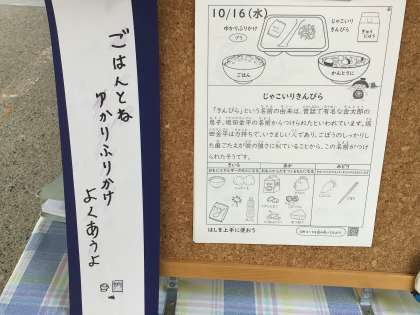 ごはんとね
ゆかりふりかけ
よくあうよ
10/16(水)
ゆかりふりかけ
ごはん
かんとうに
じゃこいりきんぴら
「きんぴら」という名前の由来は、昔話で有名な金太郎の
息子、坂田金平の名前からつけられたといわれています。坂
田金平は力持ちで、いさましい人であり、ごぼうのしっかりし
た歯ごたえが彼の強さに似ていることから、この名前がつけ
られたそうです。
きいろ
あか
みどり
はしを上手に使おう